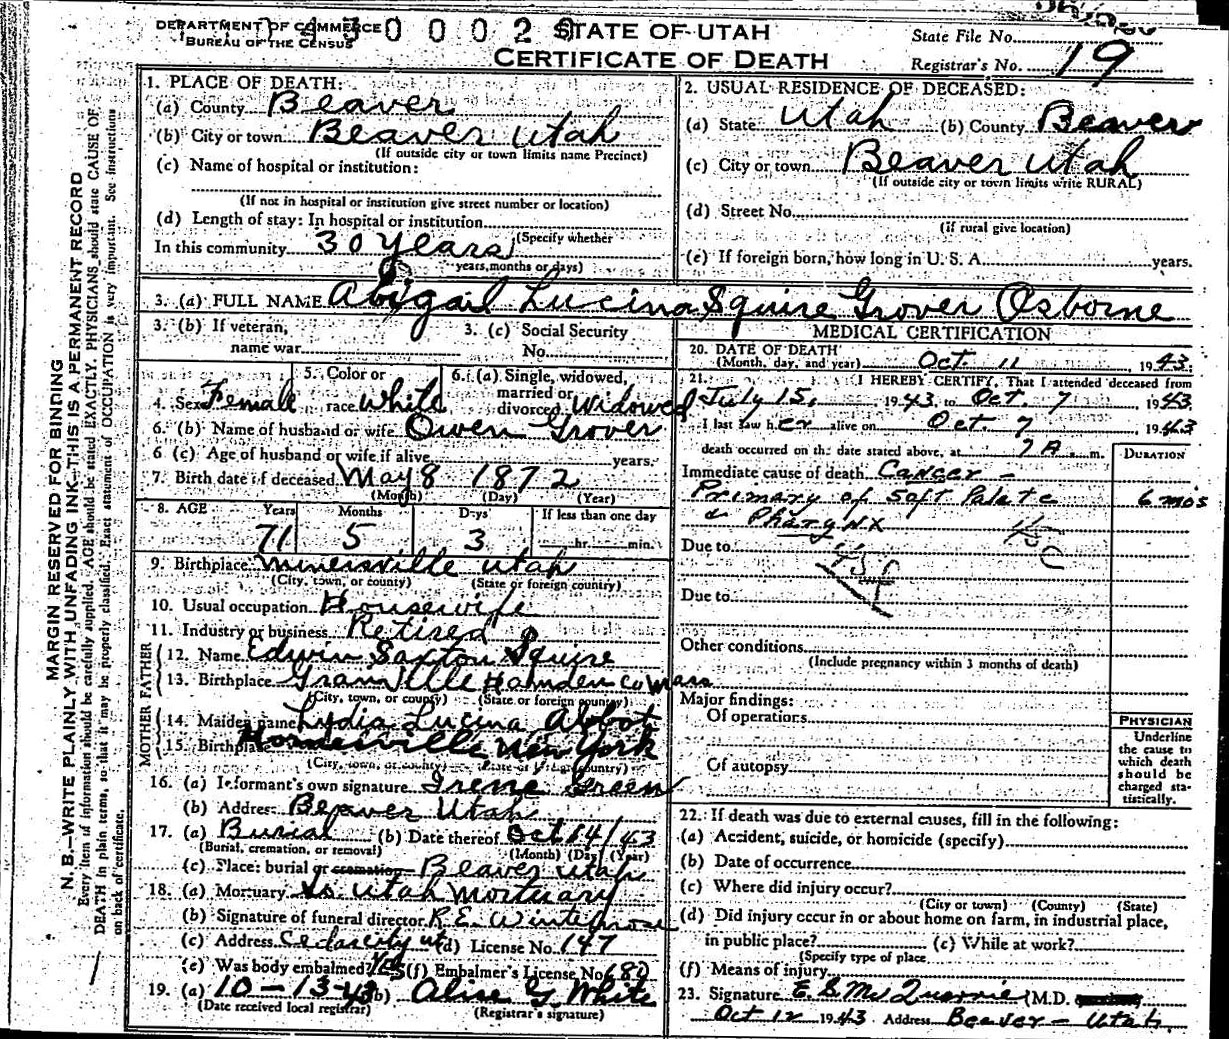 DEPARTMENT OF COMMERCE
BUREAU OF THE CENSUS
STATE OF UTAH
CERTIFICATE OF DEATH
State File No.
Registrar's No. 19
MARGIN RESERVED FOR BINDING
N. B.—WRITE PLAINLY WITH UNFADING INK—THIS IS A PERMANENT RECORD
Every item of information should be carefully supplied. AGE should be stated EXACTLY. PHYSICIANS should state CAUSE OF
DEATH in plain terms, so that it may be properly classified. Exact statement of OCCUPATION is very important. See instructions
on back of certificate.
1. PLACE OF DEATH:
(a) County Beaver
(b) City or town Beaver Utah
(If outside city or town limits name Precinct)
(c) Name of hospital or institution:
(If not in hospital or institution give street number or location)
(d) Length of stay: In hospital or institution
(Specify whether
In this community 30 Years
years, months or days)
2. USUAL RESIDENCE OF DECEASED:
(a) State Utah (b) County Beaver
(c) City or town Beaver Utah
(If outside city or town limits write RURAL)
(d) Street No.
(If rural give location)
(e) If foreign born, how long in U. S. A. years.
3. (a) FULL NAME Abigail Lucina Squire Grover Osborne
3. (b) If veteran,
name war
3. (c) Social Security
No.
4. Sex Female
5. Color or
race White
6. (a) Single, widowed,
married or
divorced Widowed
6. (b) Name of husband or wife Owen Grover
6 (c) Age of husband or wife if alive years.
7. Birth date of deceased May 8 1872
(Month) (Day) (Year)
8. AGE Years Months Days If less than one day
71 5 3 hr. min.
9. Birthplace Minersville Utah
(City, town, or county) (State or foreign country)
10. Usual occupation Housewife
11. Industry or business Retired
FATHER
12. Name Edwin Saxton Squire
13. Birthplace Granville Hamden Co Mass
(City, town, or county) (State or foreign country)
MOTHER
14. Maiden name Lydia Lucina Abbot
15. Birthplace Hornesville New York
(City, town, or county) (State or foreign country)
16. (a) Informant's own signature Irene Green
(b) Address Beaver Utah
17. (a) Burial (b) Date thereof Oct 14/43
(Burial, cremation, or removal) (Month) (Day) (Year)
(c) Place: burial or cremation Beaver Utah
18. (a) Mortuary So. Utah Mortuary
(b) Signature of funeral director R.E. Winterrose
(c) Address Cedar City Ut (d) License No. 147
(e) Was body embalmed? Yes (f) Embalmer's License No. 680
19. (a) 10-13-43 (b) Alise G. White
(Date received local registrar) (Registrar's signature)
MEDICAL CERTIFICATION
20. DATE OF DEATH
(Month, day, and year) Oct 11, 1943
21. I HEREBY CERTIFY, That I attended deceased from
July 15, 1943 to Oct. 7, 1943
I last saw her alive on Oct. 7 1943
death occurred on the date stated above, at 7 A. m.
DURATION
Immediate cause of death Cancer -
Primary of soft Palate 6 mos
& Pharynx
Due to
Due to
Other conditions
(Include pregnancy within 3 months of death)
Major findings:
Of operations
Of autopsy
PHYSICIAN
Underline
the cause to
which death
should be
charged sta-
tistically.
22. If death was due to external causes, fill in the following:
(a) Accident, suicide, or homicide (specify)
(b) Date of occurrence
(c) Where did injury occur?
(City or town) (County) (State)
(d) Did injury occur in or about home on farm, in industrial place,
in public place? (e) While at work?
(Specify type of place
(f) Means of injury
23. Signature E. S. McQuarrie (M.D.
Oct 12 1943 Address Beaver - Utah